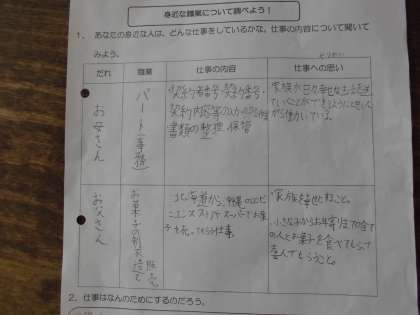 身近な職業について調べよう！
1. あなたの身近な人は、どんな仕事をしているかな。仕事の内容について聞いて
みよう。
だれ 職業 仕事の内容 仕事への思い
お母さん
パート（事務）
契約者番号・契約番号・
契約内容等の入力
書類の整理、保管
家族が日々幸せな生活を送っ
ていくことができるようにと思いな
がら働いている。
お父さん
お菓子の製造と販売
北海道から、沖縄のコンビ
ニエンスストアやスーパーでお菓
子を売ってもらう仕事。
家族を幸せにすること。
小さな子からお年寄りまで全て
の人にお菓子を食べてもらって
喜んでもらうこと。
2. 仕事はなんのためにするのだろう。